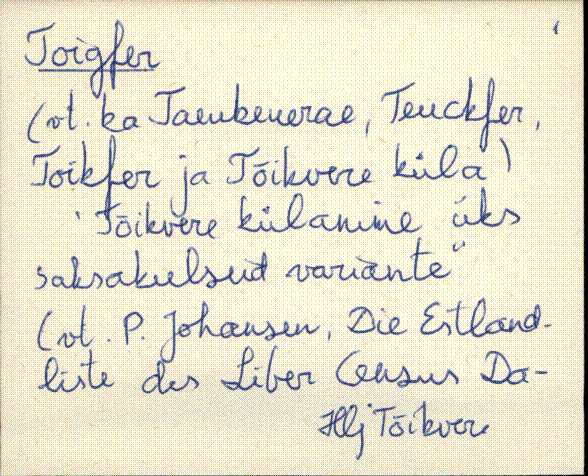 Toigfer
(vt. ka Taeukeuerae, Teuckfer,
Toikfer ja Tõikvere küla)
"Tõikvere külanime üks
saksakeelseid variante"
(vt. P. Johansen, Die Estland-
liste des Liber Census Da-
Hlj Tõikvere